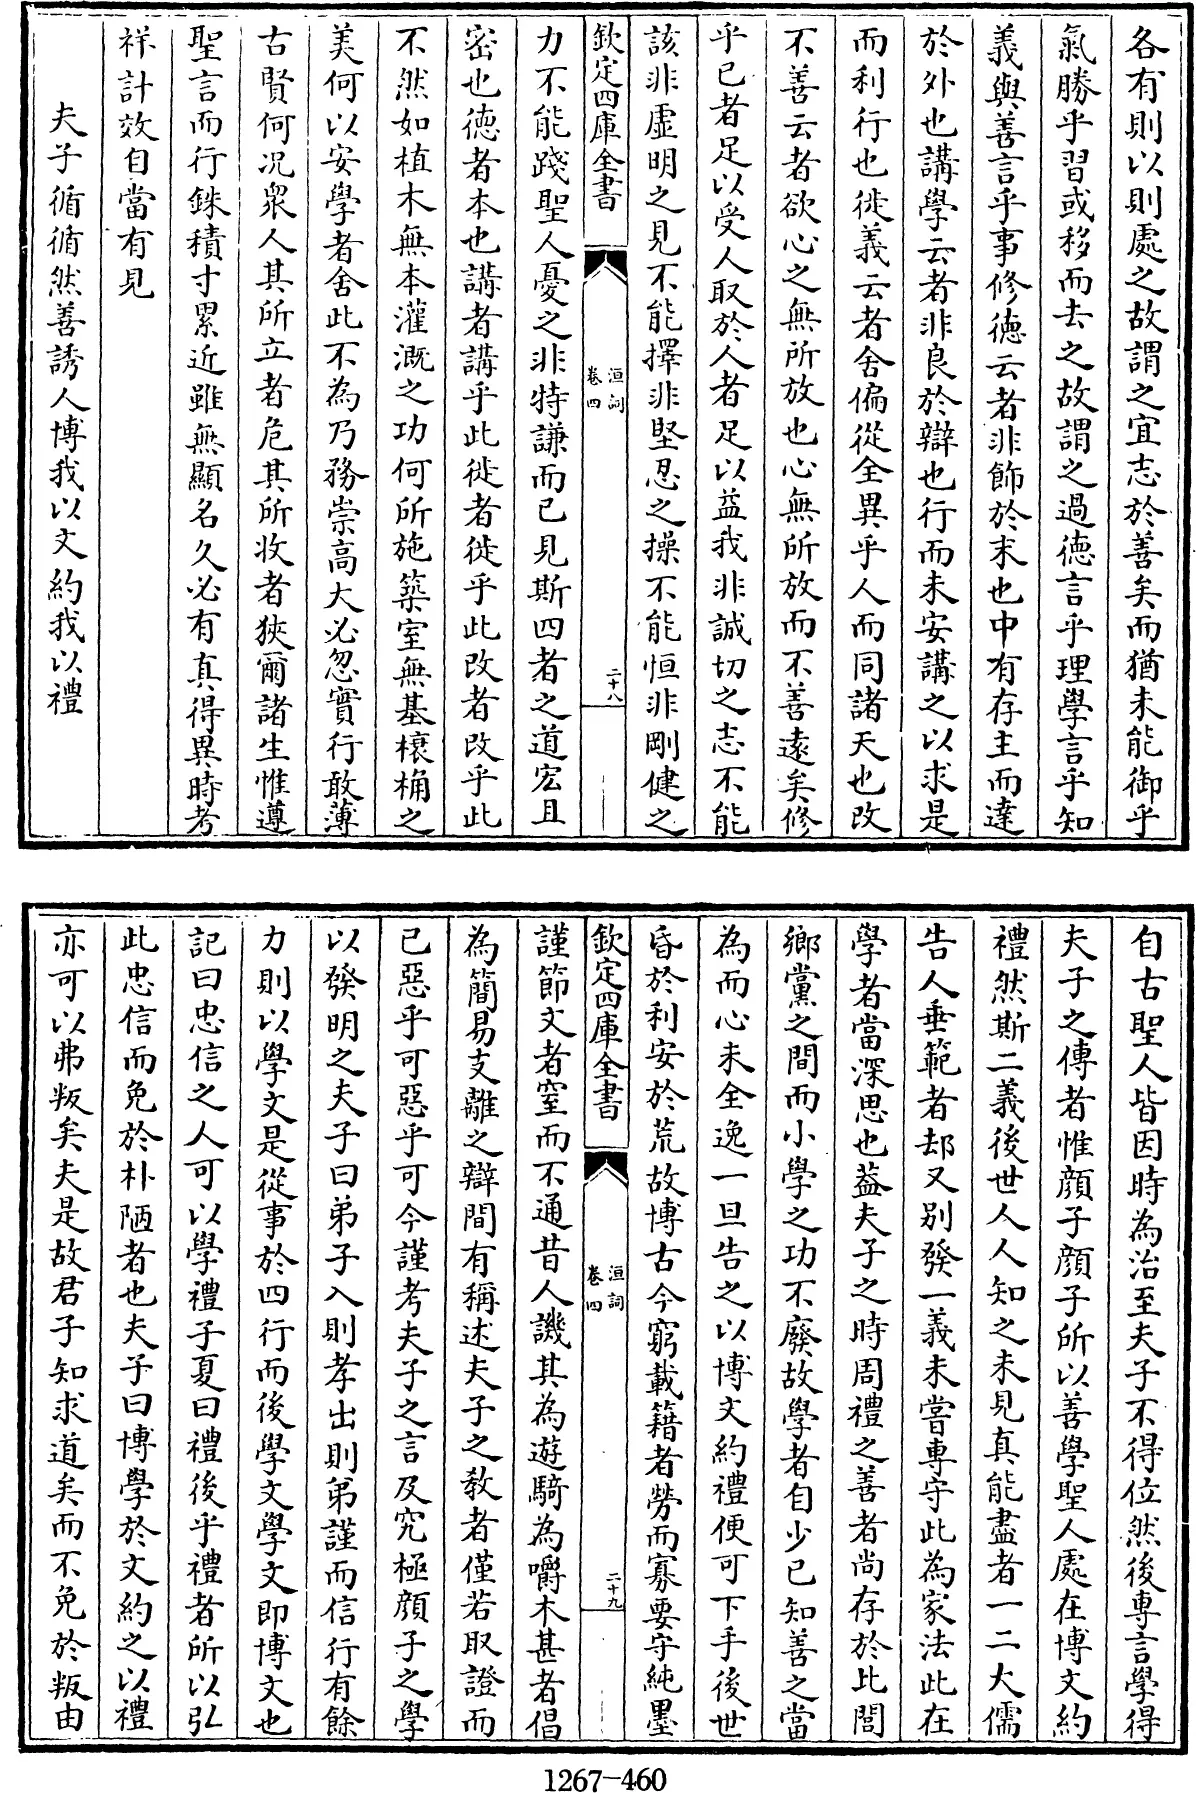 各有則以則處之故謂之宜志於善矣而猶未能御乎
氣勝乎習或移而去之故謂之過德言乎理學言乎知
義與善言乎事修德云者非飾於末也中有存主而達
於外也講學云者非良於辯也行而未安講之以求是
而利行也徙義云者舍偏從全異乎人而同諸天也改
不善云者欲心之無所放也心無所放而不善遠矣修
乎已者足以受人取於人者足以益我非誠切之志不能
該非虛明之見不能擇非堅忍之操不能恒非剛健之
欽定四庫全書
洹詞
卷四
二十八
力不能踐聖人憂之非特謙而已見斯四者之道宏且
密也德者本也講者講乎此徙者徙乎此改者改乎此
不然如植木無本灌溉之功何所施築室無基榱桷之
美何以安學者舍此不為乃務崇高大必忽實行敢薄
古賢何況衆人其所立者危其所收者狹爾諸生惟遵
聖言而行銖積寸累近雖無顯名久必有真得異時考
祥計效自當有見
夫子循循然善誘人博我以文約我以禮
自古聖人皆因時為治至夫子不得位然後專言學得
夫子之傳者惟顔子顔子所以善學聖人處在博文約
禮然斯二義後世人人知之未見真能盡者一二大儒
告人垂範者却又別發一義未嘗專守此為家法此在
學者當深思也蓋夫子之時周禮之善者尚存於比閭
鄉黨之間而小學之功不廢故學者自少已知善之當
為而心未全逸一旦告之以博文約禮便可下手後世
昏於利安於荒故博古今窮載籍者勞而寡要守純墨
欽定四庫全書
洹詞
卷四
二十九
謹節文者窒而不通昔人譏其為遊騎為嚼木甚者倡
為簡易支離之辯間有稱述夫子之教者僅若取證而
已惡乎可惡乎可今謹考夫子之言及究極顔子之學
以發明之夫子曰弟子入則孝出則弟謹而信行有餘
力則以學文是從事於四行而後學文學文即博文也
記曰忠信之人可以學禮子夏曰禮後乎禮者所以弘
此忠信而免於朴陋者也夫子曰博學於文約之以禮
亦可以弗叛矣夫是故君子知求道矣而不免於叛由
1267-460